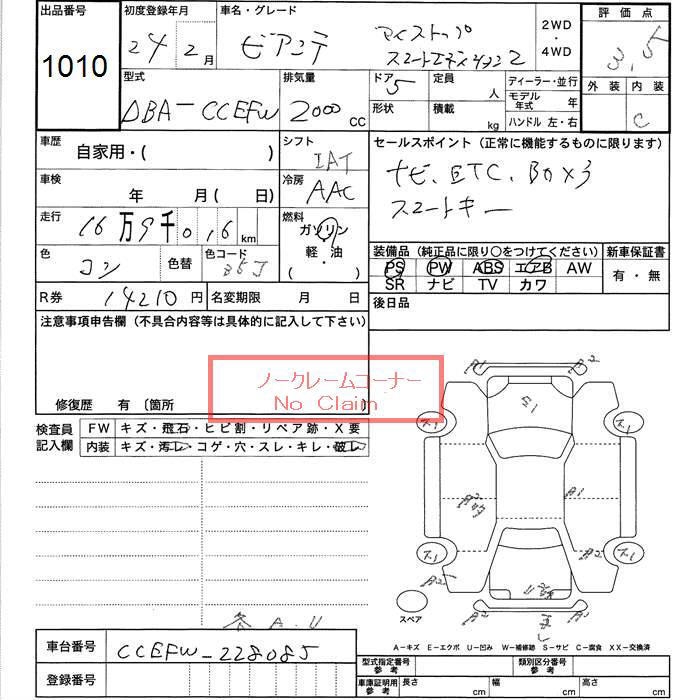 出品番号 初度登録年月 車名・グレード 評価点
1010 24年 2月 ビアンテ アイストップ スマートエディション2 2WD・4WD 3.5
型式 排気量 ドア 定員 ディーラー・並行 外装 内装
DBA-CCEFW 2000 CC 5 人 モデル年式 年 C
形状 積載 kg ハンドル 左・右
車歴 自家用・( ) シフト IAT セールスポイント (正常に機能するものに限ります)
車検 年 月( 日) 冷房 AAC ナビ、ETC、BOX3
走行 16万9千016km 燃料 ガソリン 軽・油 ( ・ ) スマートキー
色 コン 色替 色コード 35J
装備品 (純正品に限り○をつけてください) 新車保証書
PS PW ABS エアB AW 有・無
SR ナビ TV カワ
R券 14210円 名変期限 月 日 後日品
注意事項申告欄 (不具合内容等は具体的に記入して下さい)
ノークレームコーナー
No Claim
修復歴 有 〔箇所
検査員記入欄 FW キズ・飛石・ヒビ割・リペア跡・X要
内装 キズ・汚レ・コゲ・穴・スレ・キレ・破レ
A2
A1
A2
A2
A2
スペア
各 A.U
A−キズ E−エクボ U−凹み W−補修跡 S−サビ C−腐食 XX−交換済
車台番号 CCEFW-228085
登録番号
型式指定番号 参考 類別区分番号 参考
車庫証明用 参考 長さ cm 幅 cm 高さ cm